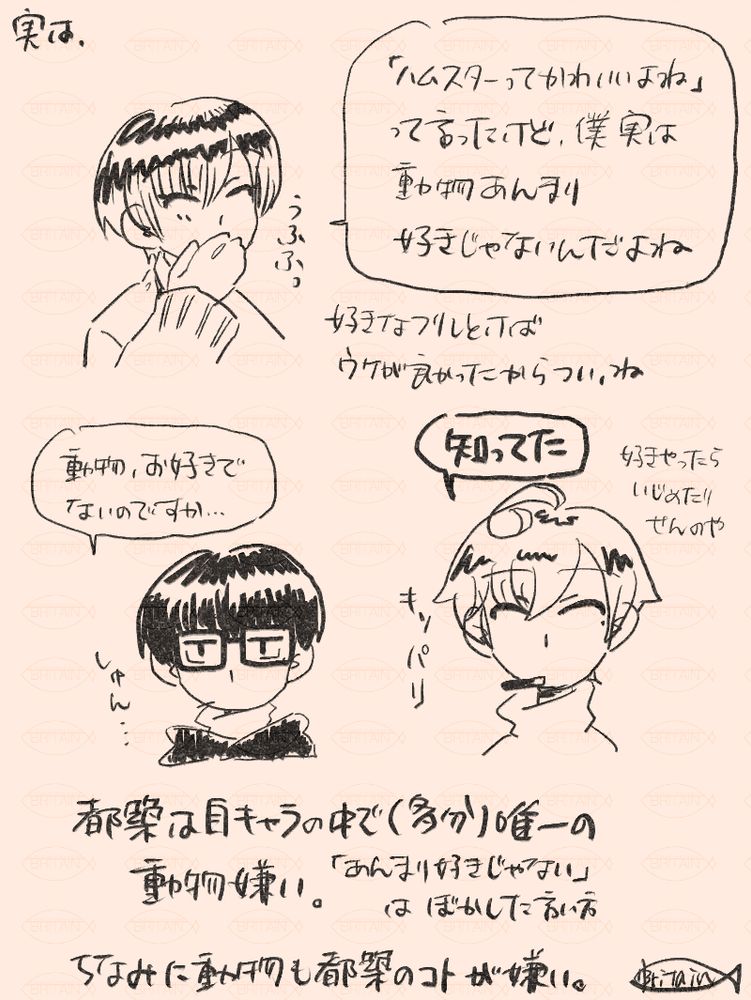 実は、
「ハムスターってかわいいよね」
って言ったけど、僕実は
動物あんまり
好きじゃないんだよね
うふふっ
好きなフリしとけば
ウケが良かったからつい。ね
動物、お好きで
ないのですか…
しゅん…
知ってた
好きやったら
いじめたり
せんのや
キッパリ
都築は自キャラの中で(多分)唯一の
動物嫌い。「あんまり好きじゃない」
はぼかした言い方
ちなみに動物も都築のコトが嫌い。
Britain